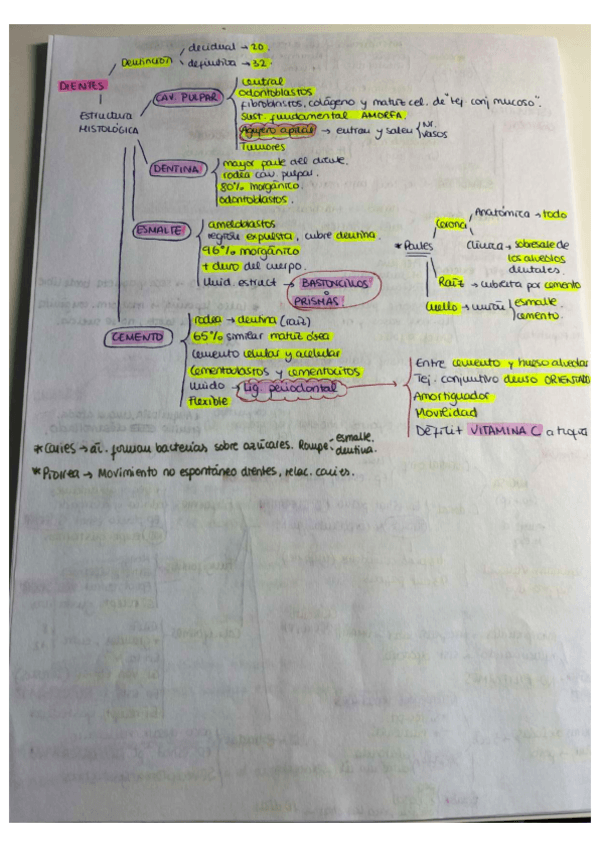 DIENTES
Dentición
decidual → 20.
definitiva → 32.
Estructura
HISTOLÓGICA
CAV. PULPAR
central
odontoblastos
fibroblastos, colágeno y matriz cel. de "tej conj mucoso".
Sust. fundamental AMORFA.
Agujero apical → entran y salen
Nr.
vasos
Tumores
DENTINA
mayor parte del diente.
rodea cav. pulpar.
80% inorgánico.
odontoblastos.
ESMALTE
ameloblastos
región expuesta, cubre dentina.
96% inorgánico
+ duro del cuerpo.
Unid. estruct →
BASTONCILLOS
o
PRISMAS
* Partes
Corona
Anatómica → todo
Clínica → sobresale de
los alveolos
dentales.
Raíz → cubierta por cemento
Cuello → unión
esmalte.
cemento.
CEMENTO
rodea → dentina (raíz)
65% similar matriz ósea
Cemento celular y acelular
Cementoblastos y cementocitos
Unido → Lig. periodontal
Flexible
Entre cemento y hueso alveolar
Tej. conjuntivo denso ORIENTADO
Amortiguador
Movilidad
Déficit VITAMINA C atrofia
* Caries → ác. forman bacterias sobre azúcares. Rompe:
esmalte.
dentina.
* Piorrea → Movimiento no espontáneo dientes, relac. caries.